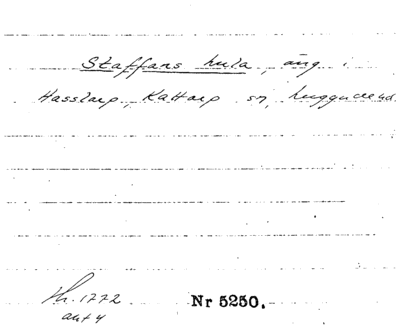 Staffans hula, äng i
Hasslarp, Kattarp sn, Luggude hd.
Nr 5250.